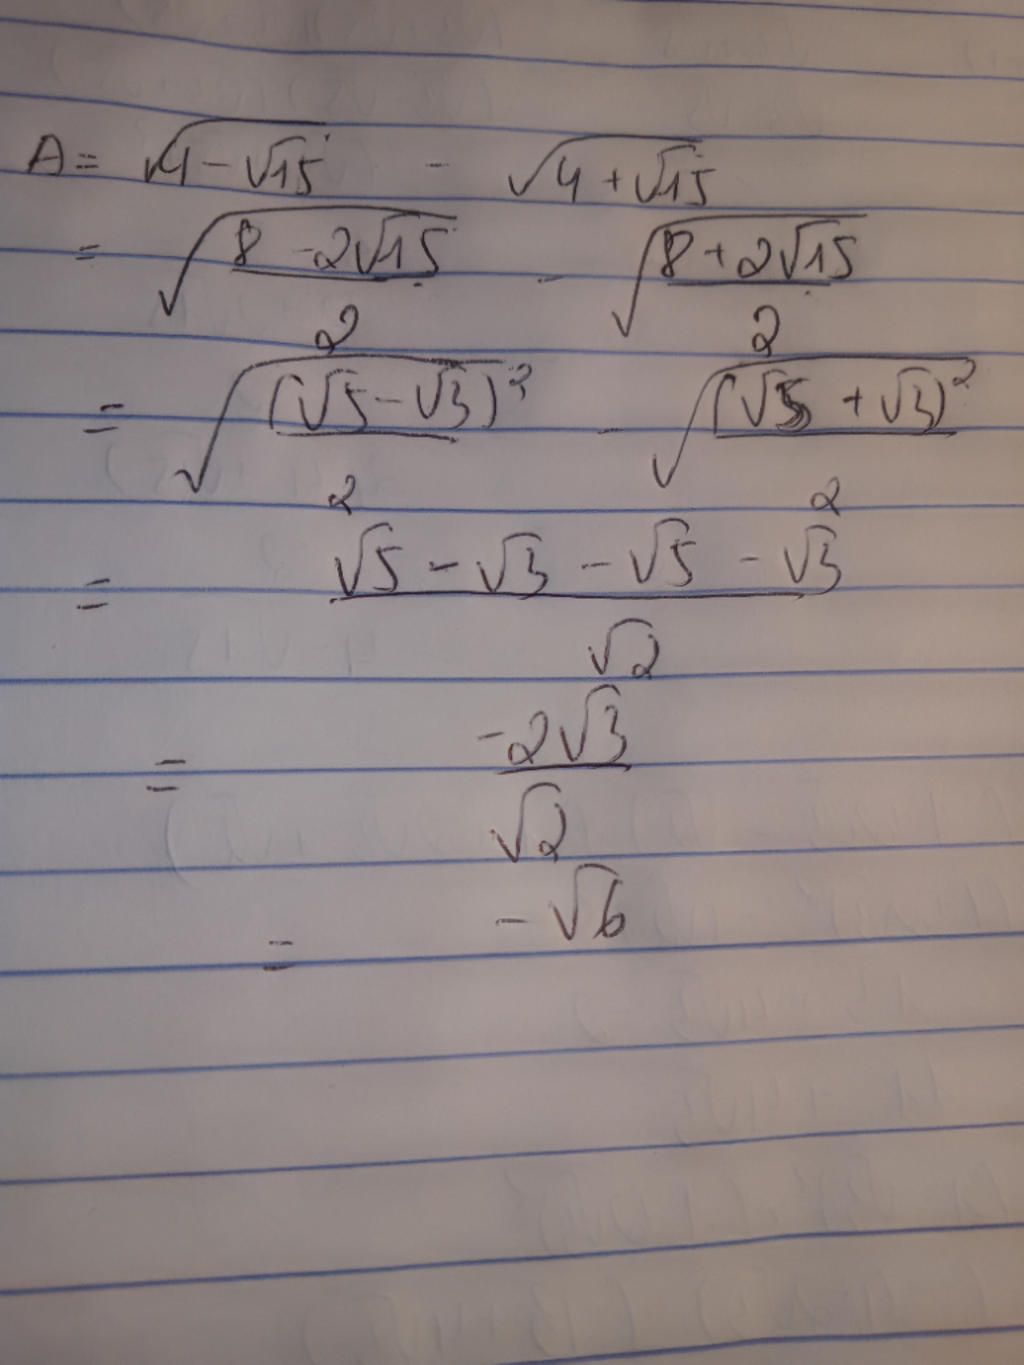 A = √(4 - √15) - √(4 + √15)
= √((8 - 2√15)/2) - √((8 + 2√15)/2)
= √((√5 - √3)²/2) - √((√5 + √3)²/2)
= (√5 - √3 - √5 - √3)/√2
= (-2√3)/√2
= -√6